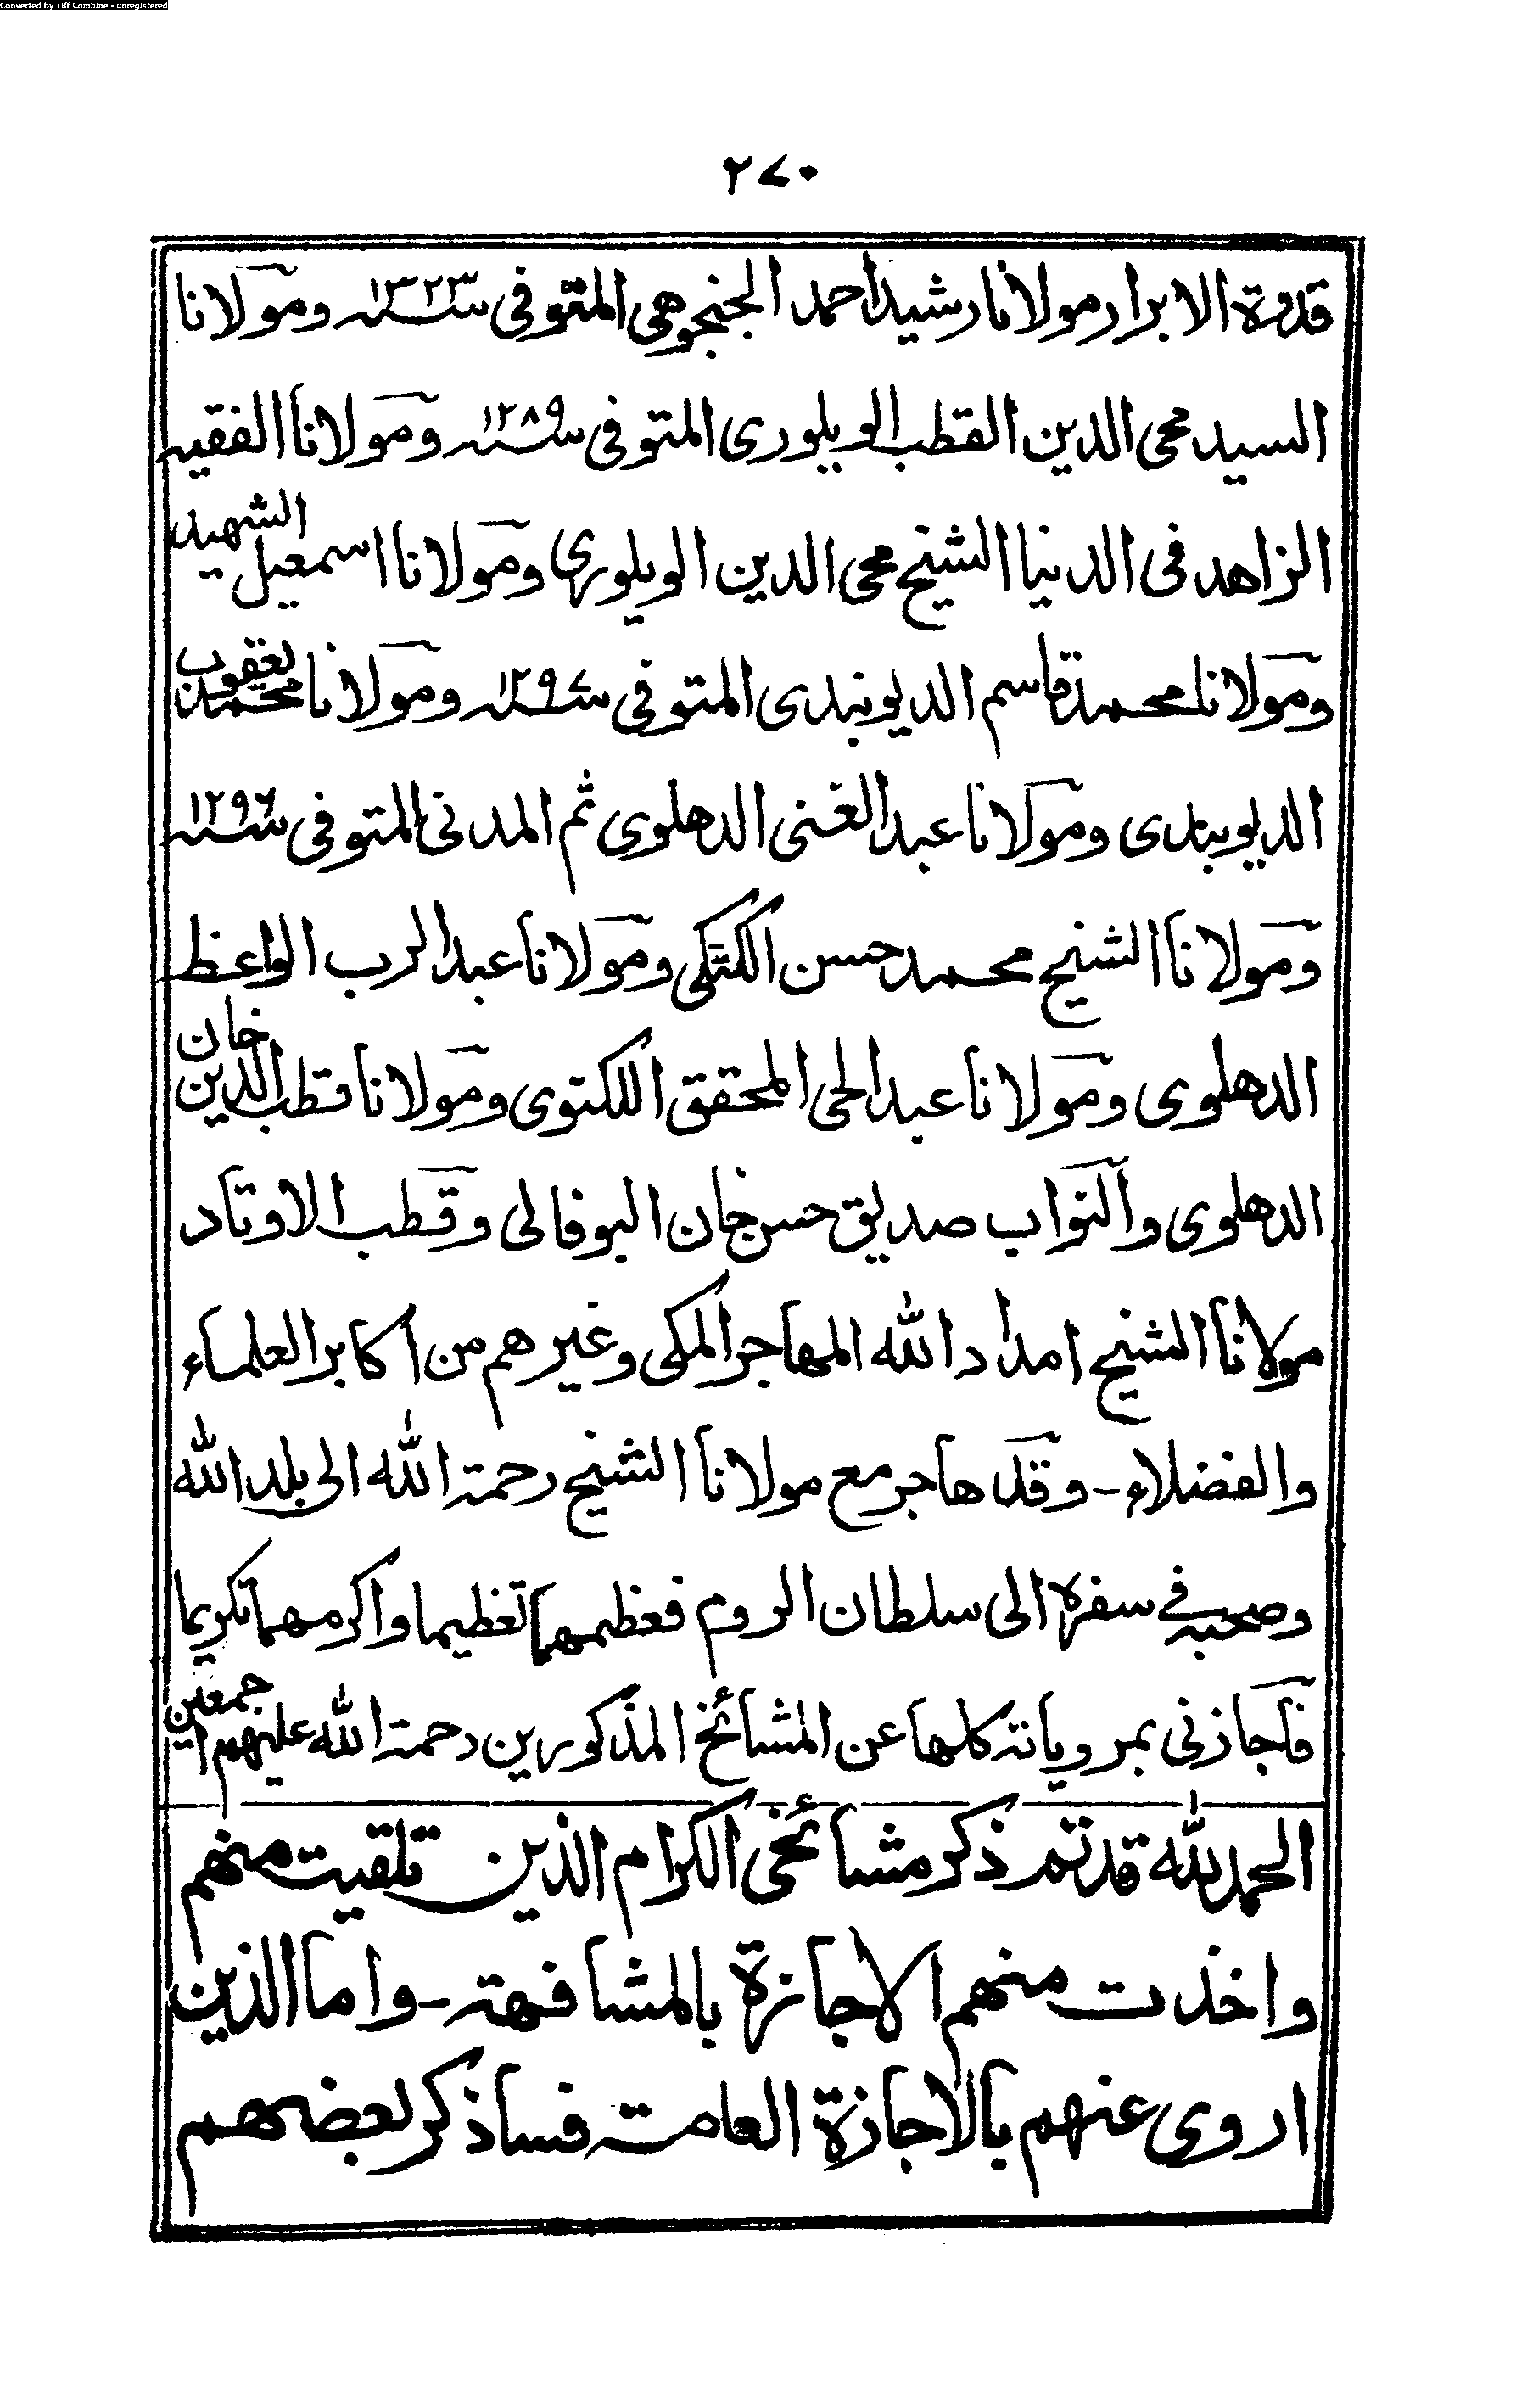 Converted by Tiff Combine - unregistered
٢٧٠
قدوة الابرار مولانا رشيد احمد الجنجوهى المتوفى سنة ١٣٢٣ ومولانا
السيد محى الدين القطب الويلورى المتوفى سنة ١٢٨٩ ومولانا الفقيه
الزاهد فى الدنيا الشيخ محى الدين الويلورى ومولانا اسمعيل الشهيد
ومولانا محمد قاسم الديوبندى المتوفى سنة ١٢٩٧ ومولانا محمد يعقوب
الديوبندى ومولانا عبد الغنى الدهلوى ثم المدنى المتوفى سنة ١٢٩٦
ومولانا الشيخ محمد حسن الكتكى ومولانا عبد الرب الواعظ
الدهلوى ومولانا عبد الحى المحقق اللكنوى ومولانا قطب الدين خان
الدهلوى والنواب صديق حسن خان البوفالى وقطب الاوتاد
مولانا الشيخ امداد الله المهاجر المكى وغيرهم من اكابر العلماء
والفضلاء - وقد هاجر مع مولانا الشيخ رحمة الله الى بلد الله
وصحبه في سفره الى سلطان الروم فعظمهما تعظيما واكرمهما تكريما
فاجازنى بمروياته كلها عن المشائخ المذكورين رحمة الله عليهم اجمعين
الحمد لله قد تم ذكر مشائخى الكرام الذين تلقيت منهم
واخذت منهم الاجازة بالمشافهة - واما الذين
اروى عنهم بالاجازة العامة فساذكر بعضهم